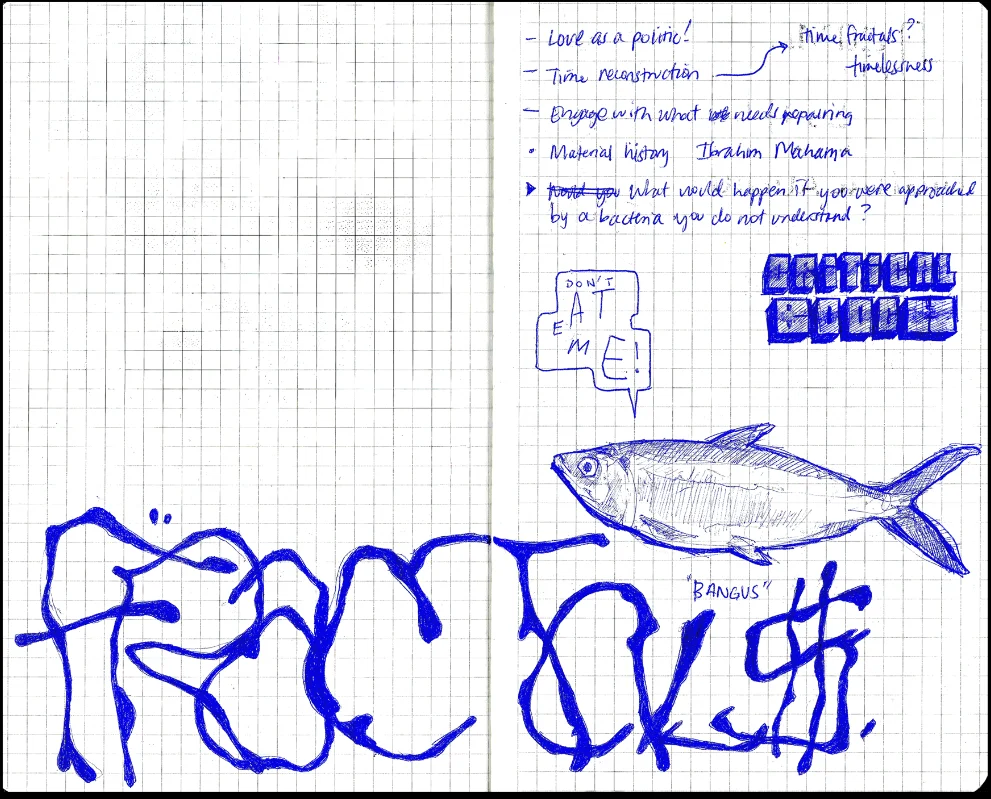 - Love as a politic!
time fractals?
- Time reconstruction
timelessness
- Engage with what needs repairing
• Material history Ibrahim Mahama
▶ Would you what would happen if you were approached
by a bacteria you do not understand?
DON'T
EAT
ME!
CRITICAL
"BANGUS"
FRACTALS